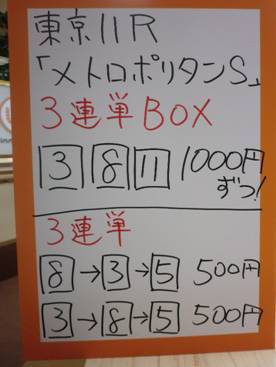 東京11R
「メトロポリタンS」
3連単BOX
3 8 11 1000円
ずつ!
3連単
8→3→5 500円
3→8→5 500円